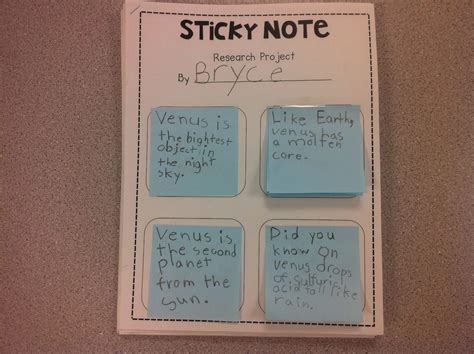 STICKY NOTE
Research Project
By Bryce
Venus is
the bightest
object in
the night
sky.
Like Earth,
venus has
a molten
core.
Venus is
the second
planet
from the
sun.
Did you
know On
venus drops
of sulfuric
acid fall like
rain.